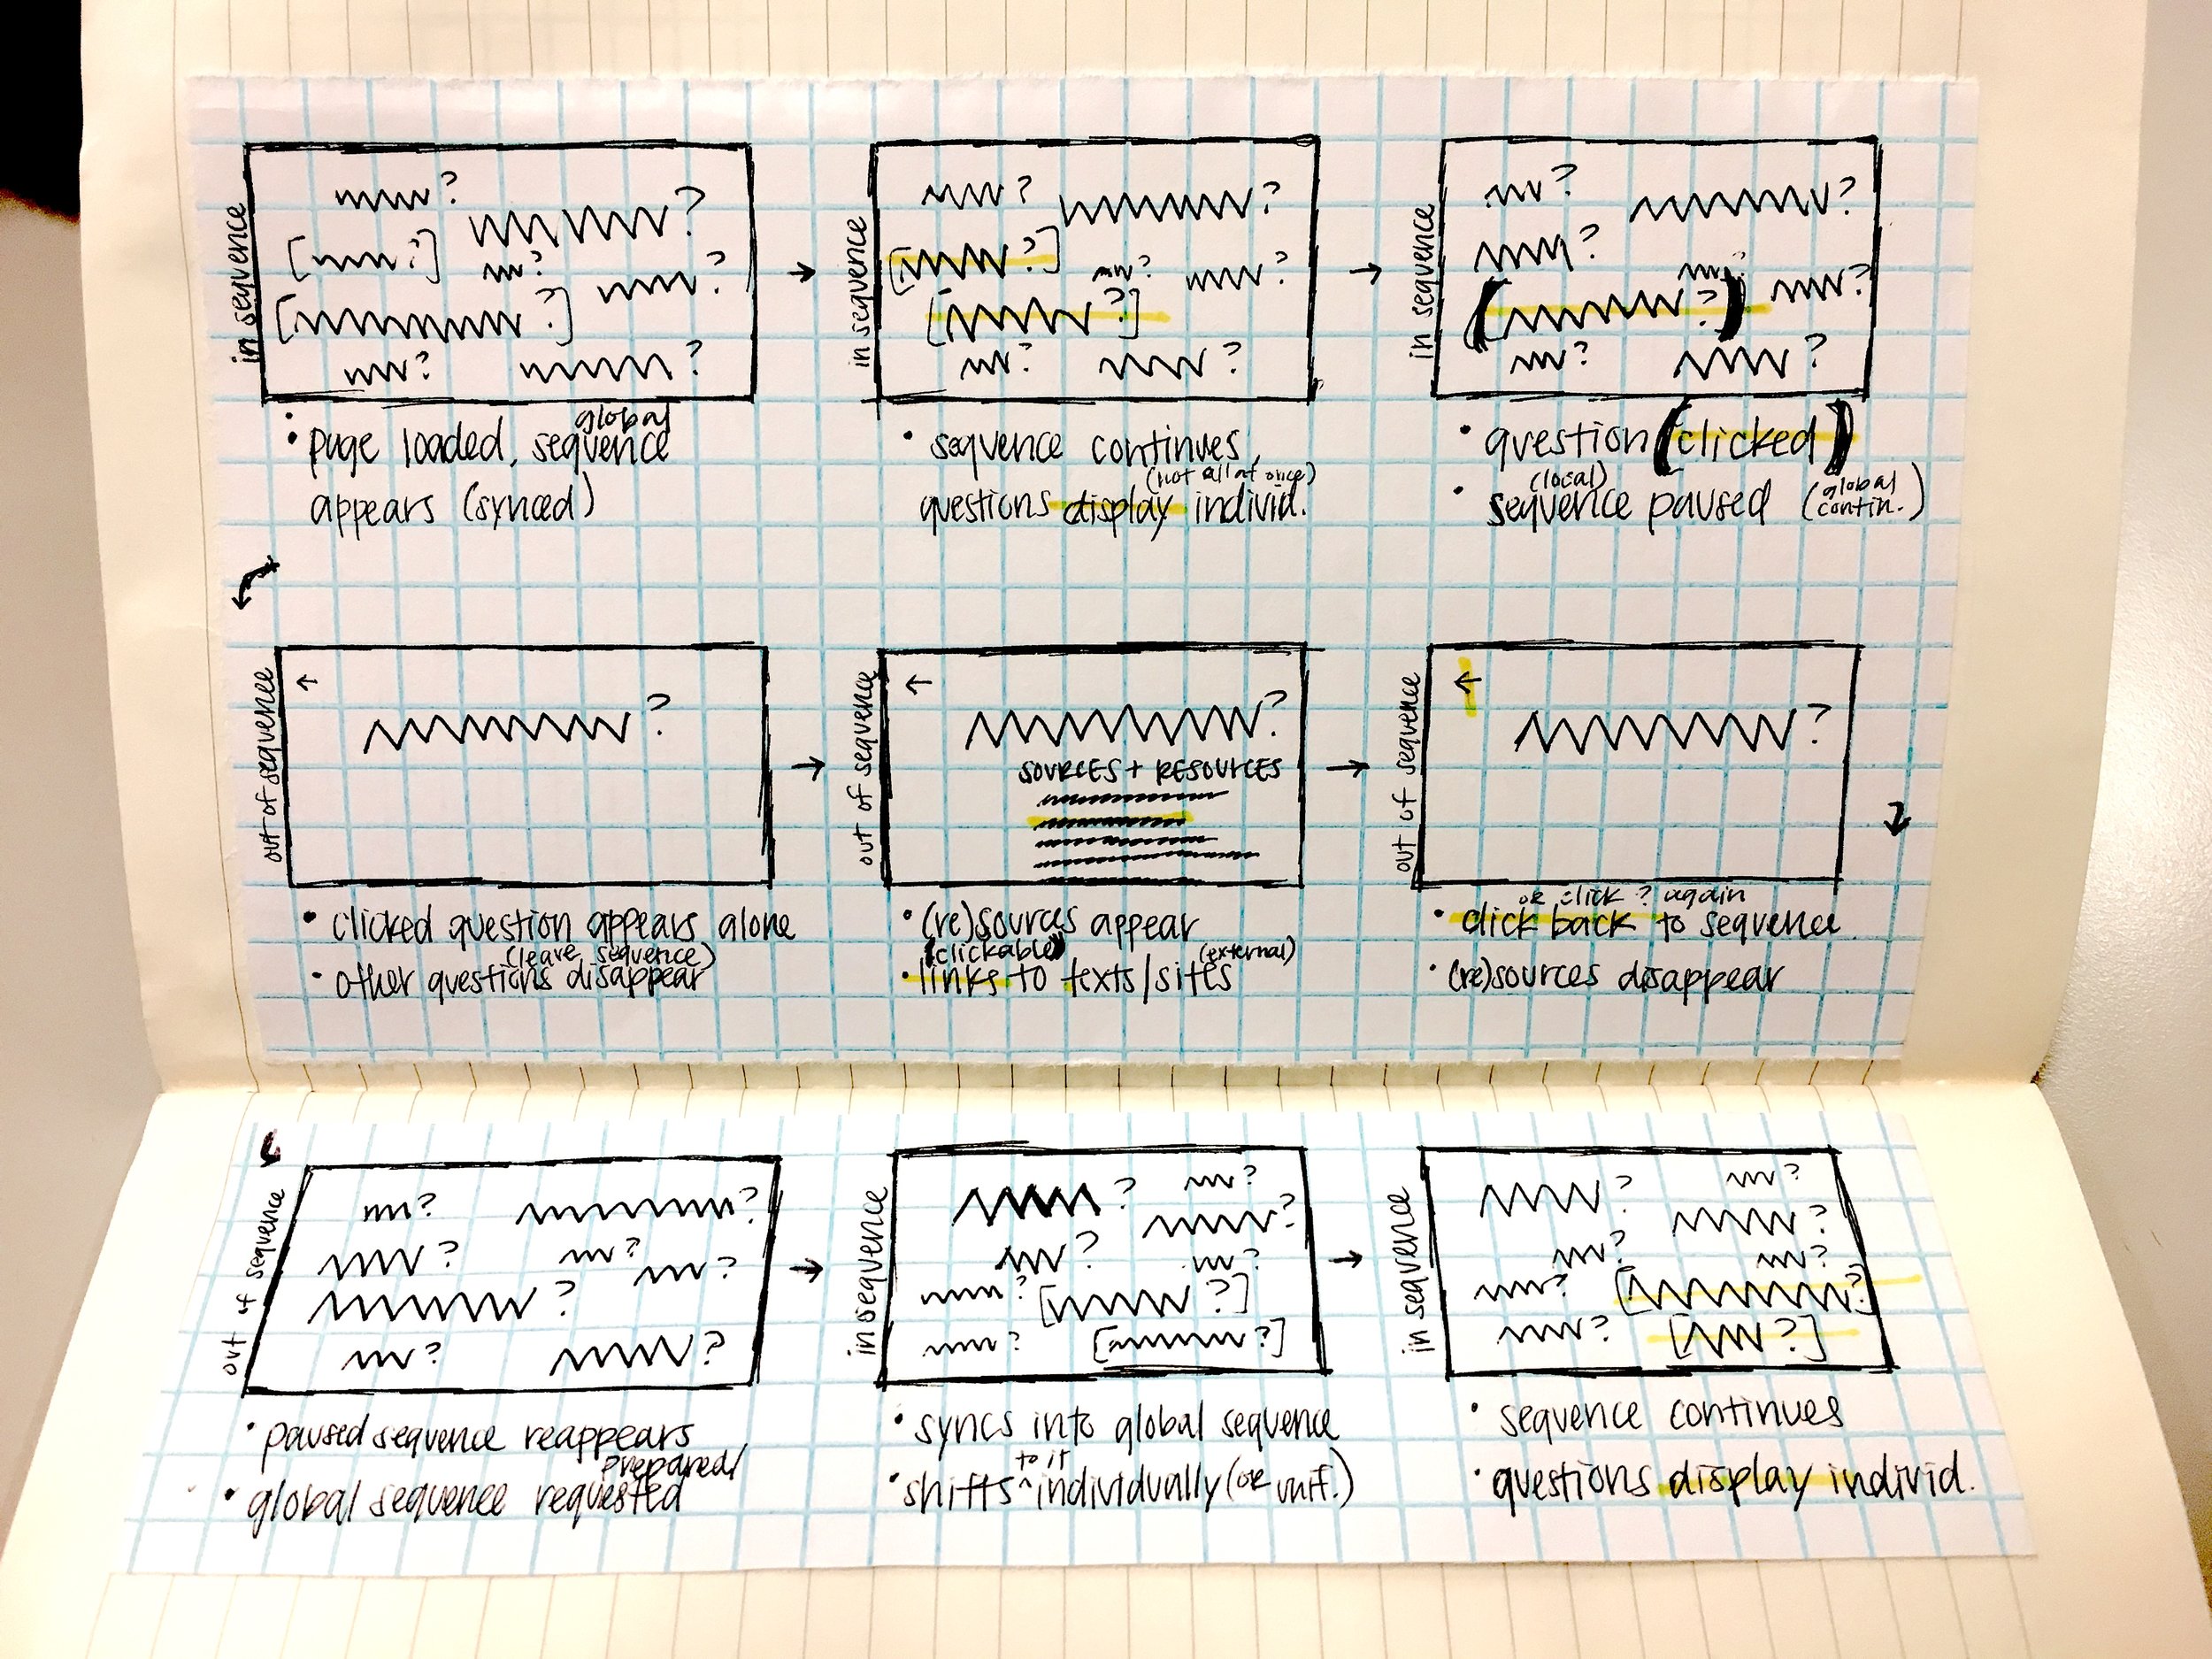 in sequence
? ? [?] ? ? [?] ? ?
• page loaded, global sequence
appears (synced)
in sequence
? ? [?] ? ? [?] ? ?
• sequence continues,
(not all at once)
questions display individ.
in sequence
? ? ? ? (?) ? ? ?
• question (clicked)
(local)
• sequence paused (global contin.)
out of sequence
←
?
• clicked question appears alone
(leave sequence)
• other questions disappear
out of sequence
←
?
SOURCES + RESOURCES
• (re)sources appear
(clickable) (external)
• links to texts/sites
out of sequence
←
?
or click ? again
• click back to sequence
• (re)sources disappear
out of sequence
? ? ? ? ? ? ? ?
• paused sequence reappears
prepared/
• global sequence requested
in sequence
? ? ? ? ? ? [?] ? [?]
• syncs into global sequence
to it
• shifts ^ individually (or unif.)
in sequence
? ? ? ? ? ? [?] ? [?]
• sequence continues
• questions display individ.